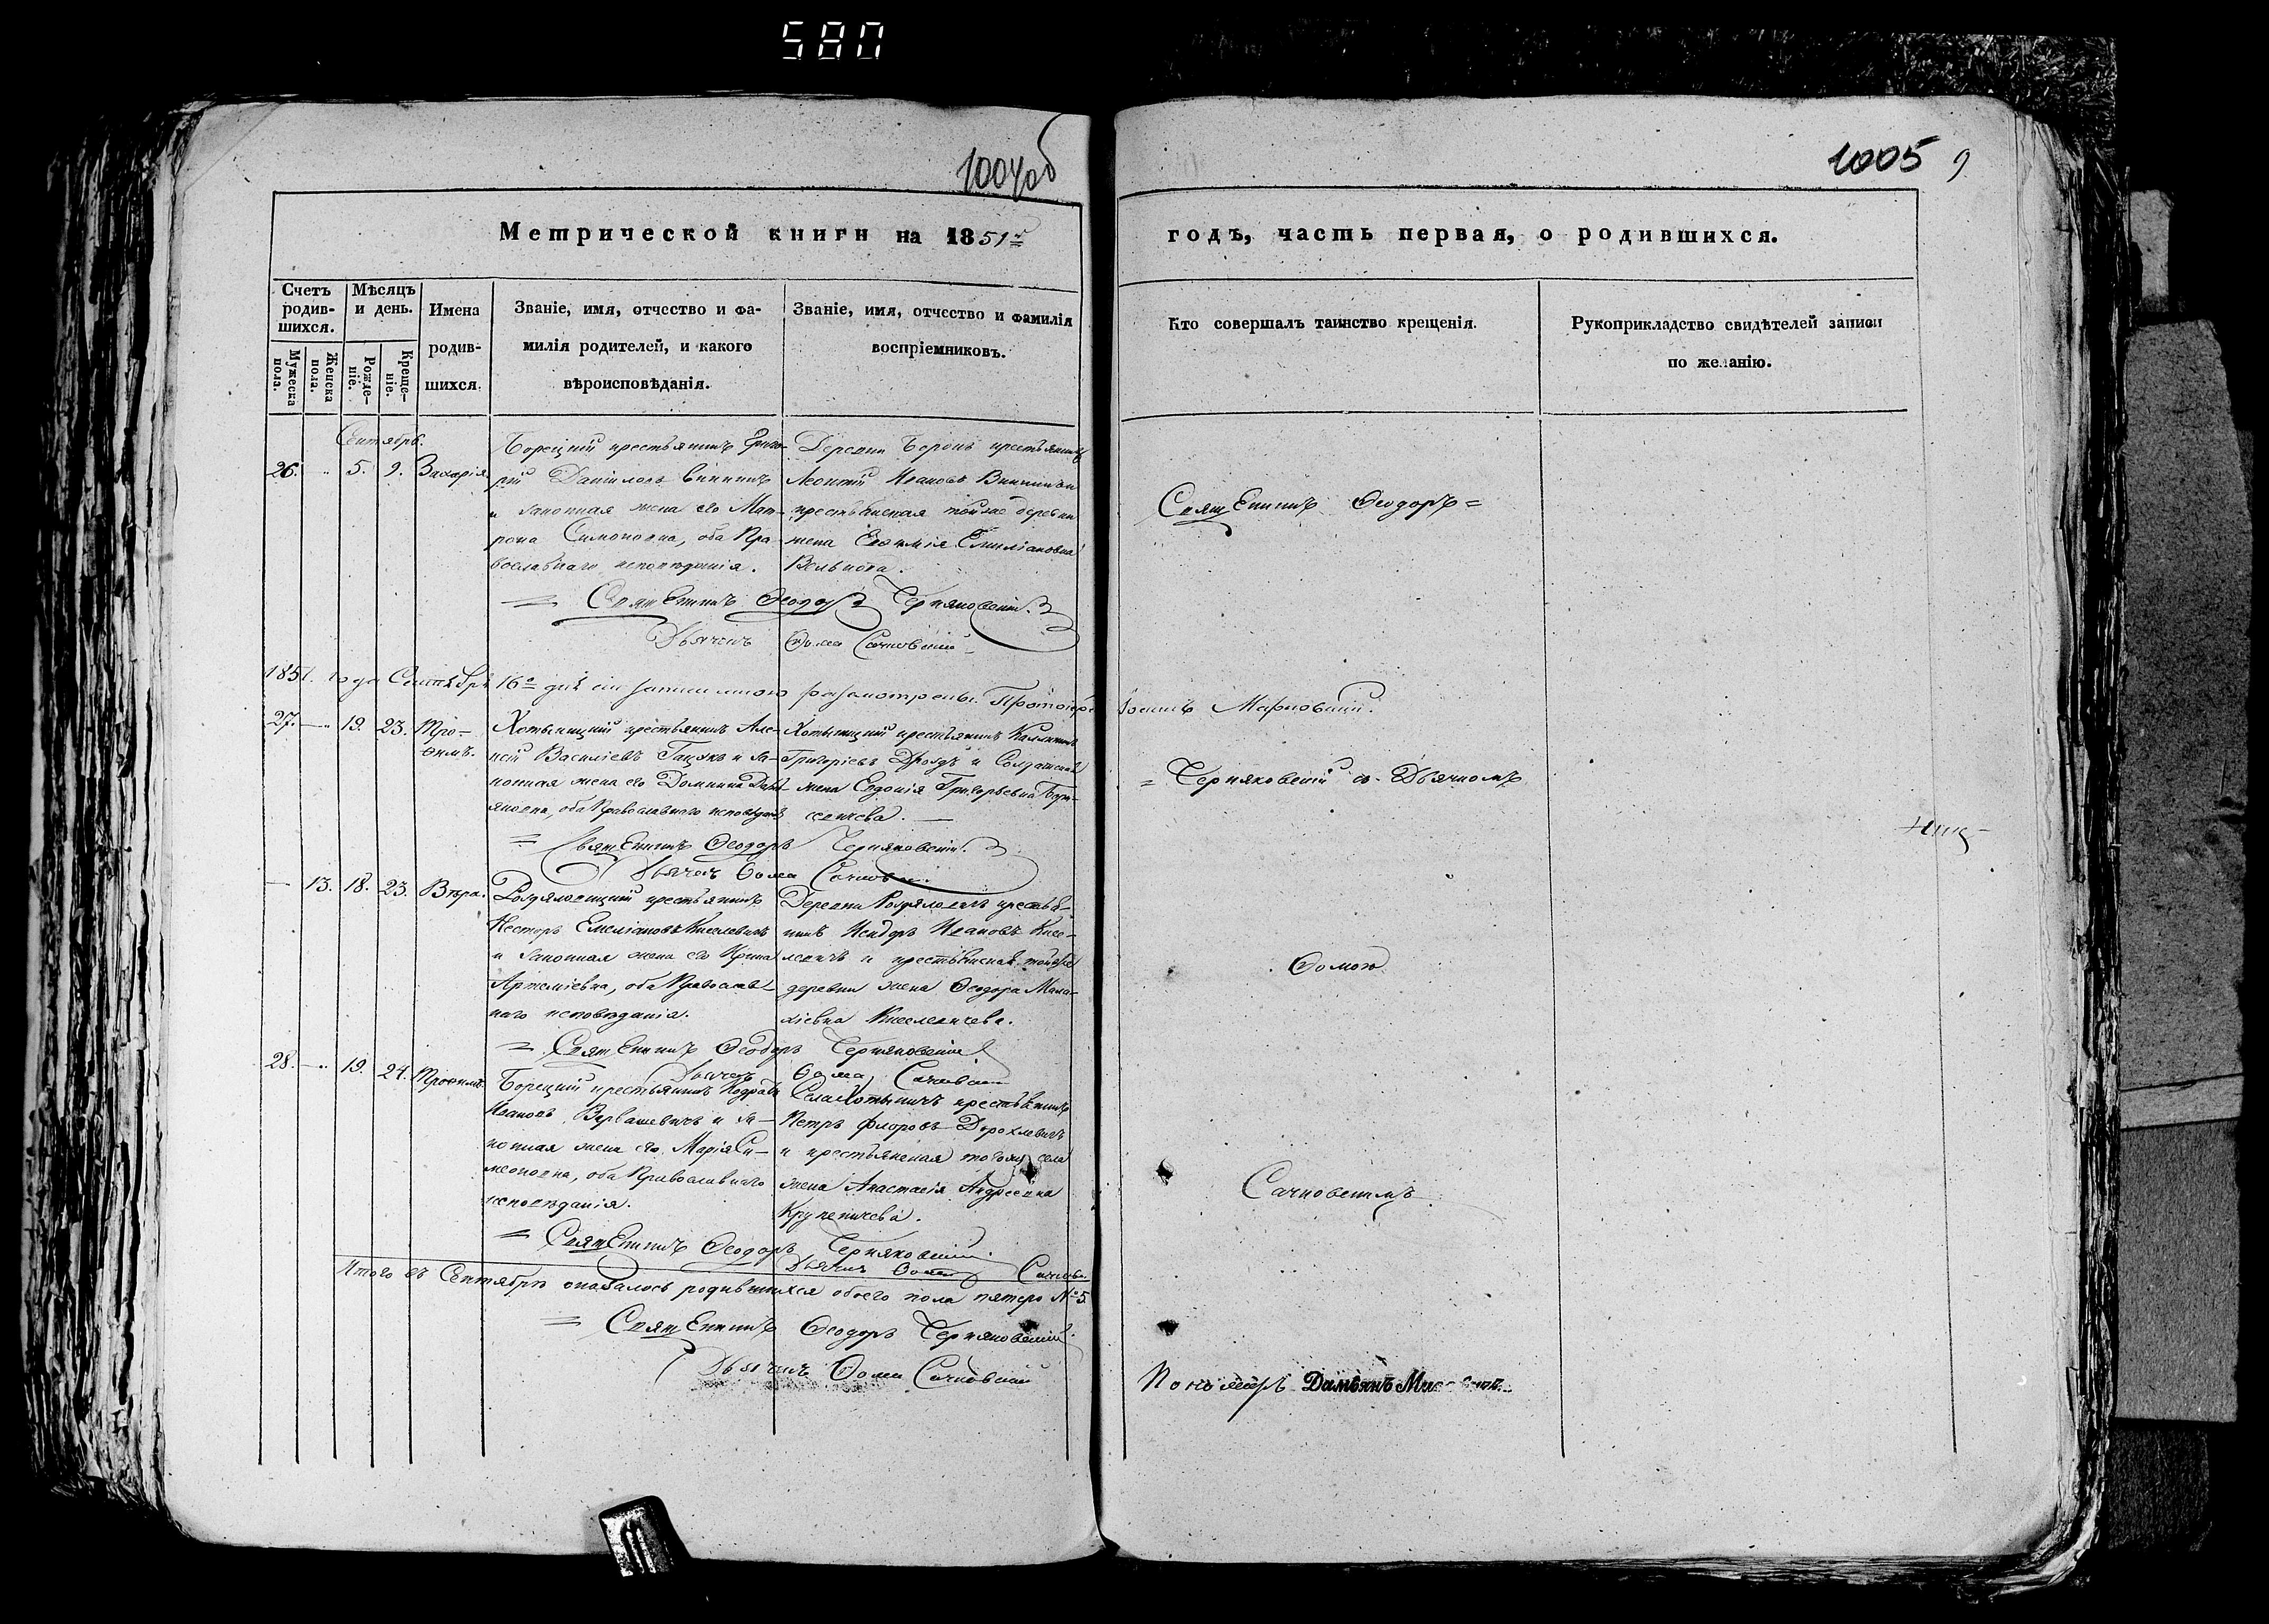 580
1004об
1005 9
Метрической книги на 1851г
годъ, часть первая, о родившихся.
Счетъ родив-шихся.
Мужеска пола.
Женска пола.
Мѣсяцъ и день.
Рожде-ніе.
Креще-ніе.
Имена
родив-
шихся.
Званіе, имя, отчество и фа-
милія родителей, и какого
вѣроисповѣданія.
Званіе, имя, отчество и фамилія
воспріемниковъ.
Кто совершалъ таинство крещенія.
Рукоприкладство свидѣтелей записи
по желанію.
Сентябрь.
26. 5. 9. Захарія.
Борецкій крестьянинъ Григо-
рій Даніиловъ
и законная жена его Мат-
рона Симоновна, оба Пра-
вославнаго исповѣданія.
Деревни крестьянинъ
Леонтій Ивановъ
крестьянская тойже деревни
жена Евфимія Емиліановна
Священникъ Ѳеодоръ Черняковскій
Дьячекъ Ѳома Сачковскій
Священникъ Ѳеодоръ=
1851. года Сентября 16го дня сіи записи мною разсмотрены. Протоіерей Іоаннъ
27. 19. 23. Тро-
фимъ.
Хотыницкій крестьянинъ Але-
ксій Василіевъ Гацукъ и за-
конная жена его Домника
оба Православнаго исповѣданія
Хотыницкій крестьянинъ
Григоріевъ Дроздъ и Солдатская
жена Евдокія Григорьевна
Священникъ Ѳеодоръ Черняковскій
Дьячекъ Ѳома
= Черняковскій съ Дьячкомъ
13. 18. 23. Вѣра.
крестьянинъ
Несторъ Емеліановъ Киселевичъ
и законная жена его Ирина
Артеміевна, оба Православ-
наго исповѣданія.
Деревни крестья-
нинъ Исидоръ Ивановъ Кисе-
левичъ и крестьянская тойже
деревни жена Ѳеодора Мала-
хіевна Киселевичева.
Священникъ Ѳеодоръ Черняковскій
Дьячекъ Ѳома Сачковскій
Ѳомою
28. 19. 24. Трофимъ.
Борецкій крестьянинъ
Ивановъ Вербашевичъ и за-
конная жена его Марія Си-
меоновна, оба Православнаго
исповѣданія.
Села Хотыничъ крестьянинъ
Петръ Флоровъ Дорохлевичъ
и крестьянская тогожъ села
жена Анастасія Андреевна
Крупеничева.
Священникъ Ѳеодоръ Черняковскій
Дьячекъ Ѳома
Сачковскимъ
Итого въ Сентябрѣ оказалось родившихся обоего пола пятеро №5.
Священникъ Ѳеодоръ Черняковскій
Дьячекъ Ѳома Сачковскій
Пономарь Дамьянъ